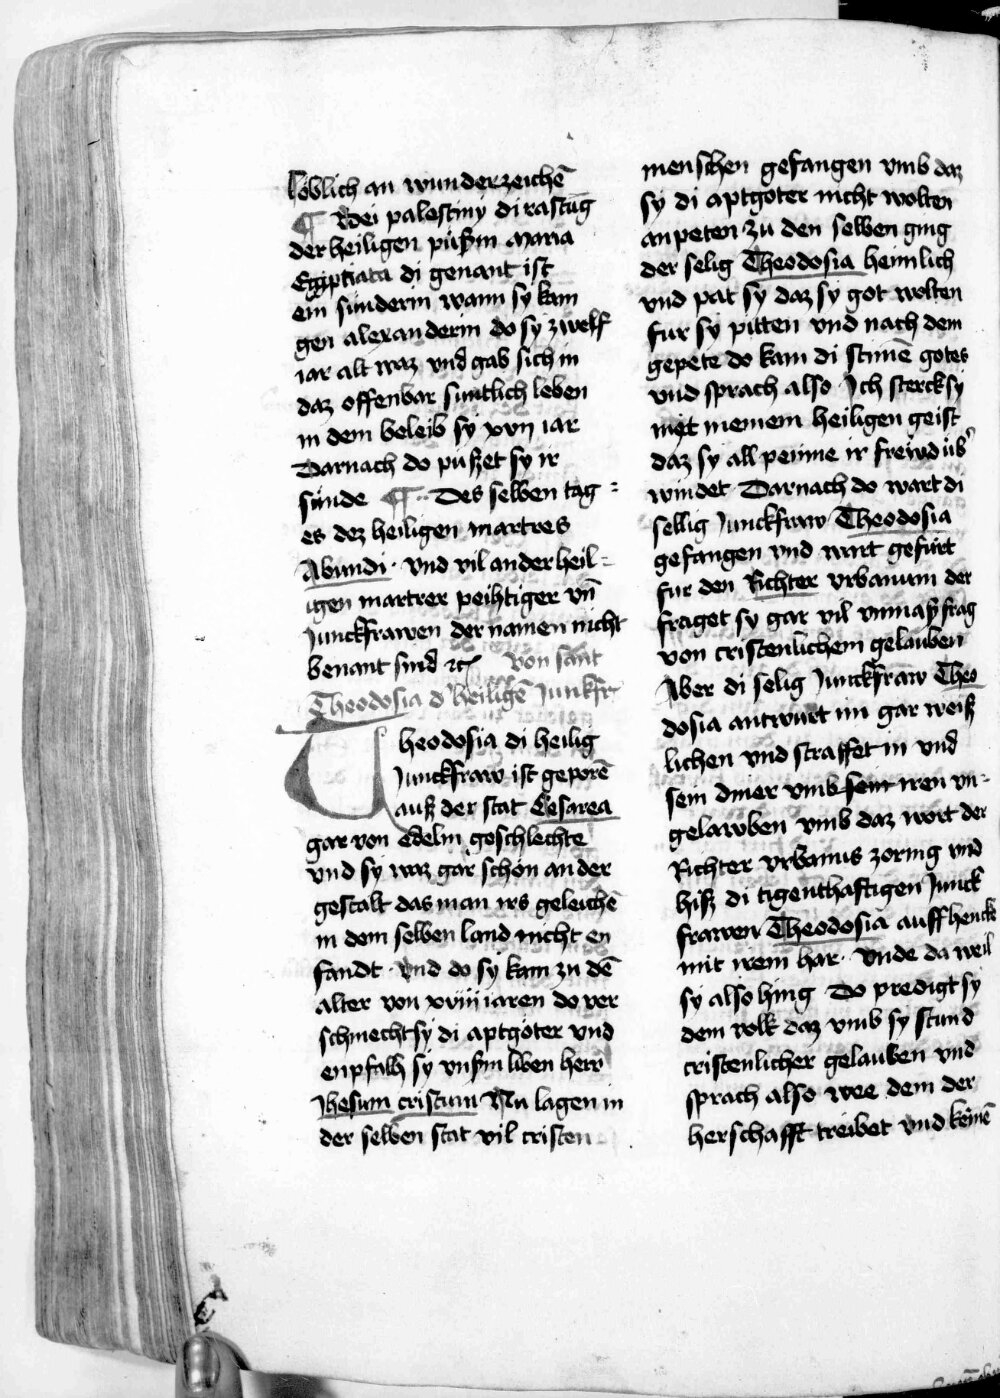 löblich an wunderzeichē
¶ Jtdei palestiny di rastūg
der heiligen püsserin Maria
Egiptiata di genant ist
ein sünderin wann sy kam
gen alexanderin do sy zwelf
iar alt waz vnd gab sich in
daz offenbar süntlich leben
in dem beleib sy xvij iar
Darnach do püszet sy ir
sünde ¶ Des selben tag =
es dez heiligen martres
Abundi · vnd vil ander heil =
igen martrer peihtiger vn̄
Junckfrawen der namen nicht
benant sind etc von sant
Theodosia d' heiligē Junkfr
Theodosia di heilig
Junckfraw ist geporē
ausz der stat Cesarea
gar von edelm geschlechte
vnd sy waz gar schön an der
gestalt das man irs geleichē
in dem selben land nicht en
fandt · vnd do sy kam zu dē
alter von xviij iaren do ver
schmecht sy di aptgöter vnd
enpfalh sy vnserm liben herr
Jhesum cristum Nu lagen in
der selben stat vil cristen
menschen gefangen vmb daz
sy di aptgöter nicht wolten
anpeten · zu den selben ging
der selig Theodosia heimlich
vnd pat sy daz sy got wolten
für sy pitten vnd nach dem
gepete do kam di stimē gotes
vnd sprach also Ich sterck sy
mit meinem heiligen geist
daz sy all peinne ir freiwd üb'
windet Darnach do wart di
sellig Junckfraw Theodosia
gefangen vnd wart gefürt
für den Richter vrbanum der
fraget sy gar vil vnmasz frag
von cristenlichem gelauben
Aber di selig Junckfraw Theo
dosia antwurt im gar weisz
lichen vnd straffet in vnd
sein diner vmb sein iren vn =
gelawben vmb daz wort der
Richter vrbanus zornig vnd
hisz di tigenthaftigen Junck
frawen Theodosia auff henck
mit irem har · vnde da weil
sy also hing Do predigt sy
dem volk daz vmb sy stund
cristenlicher gelauben vnd
sprach also wee dem der
herschafft treibet vnd keinē